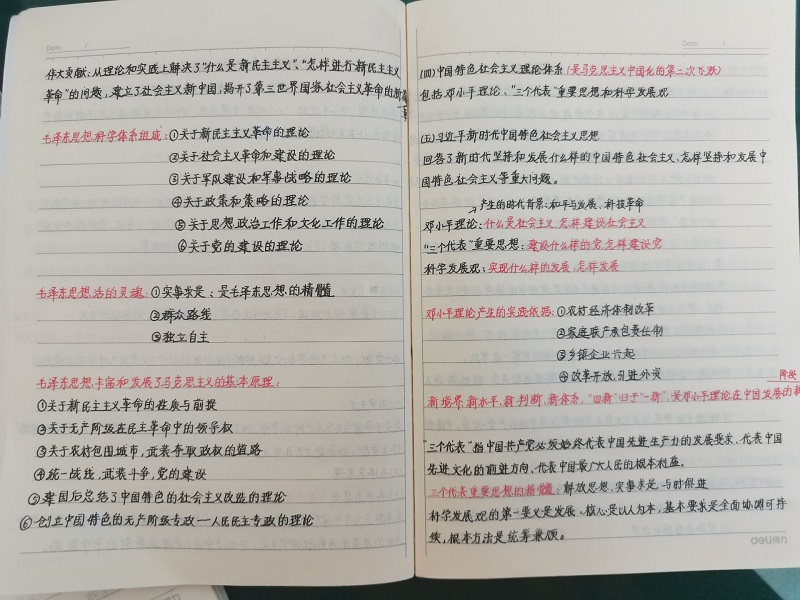 Date. /
伟大贡献:从理论和实践上解决了"什么是新民主主义"、"怎样进行新民主主义
革命"的问题,建立了社会主义新中国,揭开了第三世界国家社会主义革命的新
毛泽东思想科学体系组成:①关于新民主主义革命的理论
②关于社会主义革命和建设的理论
③关于军队建设和军事战略的理论
④关于政策和策略的理论
⑤关于思想政治工作和文化工作的理论
⑥关于党的建设的理论
毛泽东思想活的灵魂:①实事求是:是毛泽东思想的精髓
②群众路线
③独立自主
毛泽东思想丰富和发展了马克思主义的基本原理:
①关于新民主主义革命的性质与前提
②关于无产阶级在民主革命中的领导权
③关于农村包围城市,武装夺取政权的道路
④统一战线,武装斗争,党的建设
⑤建国后总结了中国特色的社会主义改造的理论
⑥创立中国特色的无产阶级专政——人民民主专政的理论
Date. /
(四)中国特色社会主义理论体系(是马克思主义中国化的第二次飞跃)
包括邓小平理论、"三个代表"重要思想和科学发展观
(五)习近平新时代中国特色社会主义思想
回答了新时代坚持和发展什么样的中国特色社会主义、怎样坚持和发展中
国特色社会主义等重大问题。
产生的时代背景:和平与发展、科技革命
邓小平理论:什么是社会主义 怎样建设社会主义
"三个代表"重要思想:建设什么样的党 怎样建设党
科学发展观:实现什么样的发展 怎样发展
邓小平理论产生的实践依据:①农村经济体制改革
②家庭联产承包责任制
③乡镇企业兴起
④改革开放,引进外资
新境界,新水平,新判断,新体系,"四新"归于"一新",是邓小平理论在中国发展的新
阶段
"三个代表"指中国共产党必须始终代表中国先进生产力的发展要求、代表中国
先进文化的前进方向、代表中国最广大人民的根本利益。
三个代表重要思想的精髓:解放思想、实事求是、与时俱进
科学发展观的第一要义是发展,核心是以人为本,基本要求是全面协调可持
续,根本方法是统筹兼顾。
deli得力